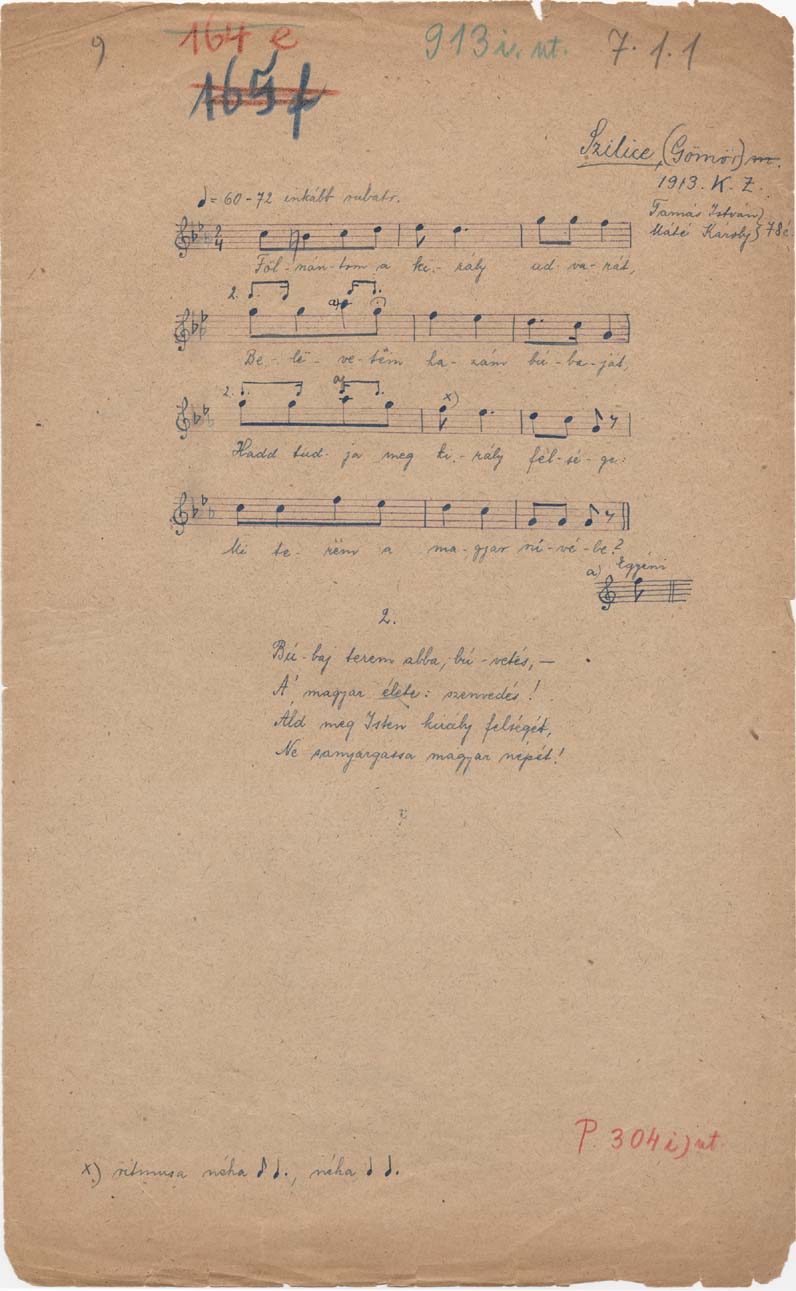 9
164 e
913 i, ut.
7. 1. 1
165 f
Szilice, (Gömör) m.
1913. K. Z.
Tamás István
Máté Károly } 78é
♩= 60-72 inkább rubato.
2
4
Föl- szán- tom a ki- rály ud- va- rát,
2.
a)
Be- lé- ve- tëm ha- zám bú- ba- ját,
2.
a)
x)
Hadd tud- ja meg ki- rály fel- sé- ge:
Mi te- rëm a ma- gyar szí- vé- be?
a) Egyéni
2.
Bú-baj terem abba, bú-vetés, —
A' magyar élete: szenvedés!
Áld meg Isten király felségét,
Ne sanyargassa magyar népét!
P 304 i) ut.
x) ritmusa néha ♪ ♩., néha ♩ ♩.